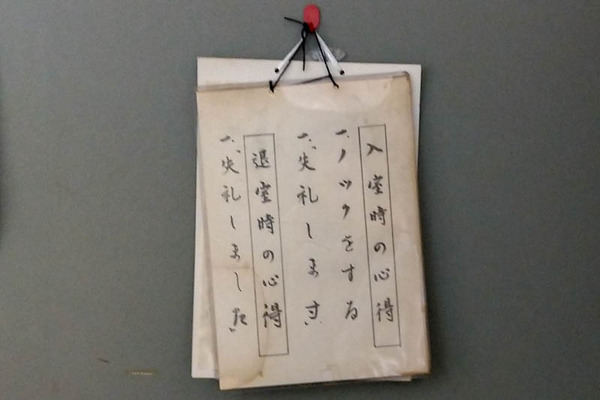 入室時の心得
一、ノックをする
一、失礼します
退室時の心得
一、失礼しました